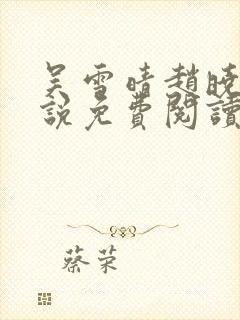 吴雪晴趙晓
說免費閱讀
蔡荣